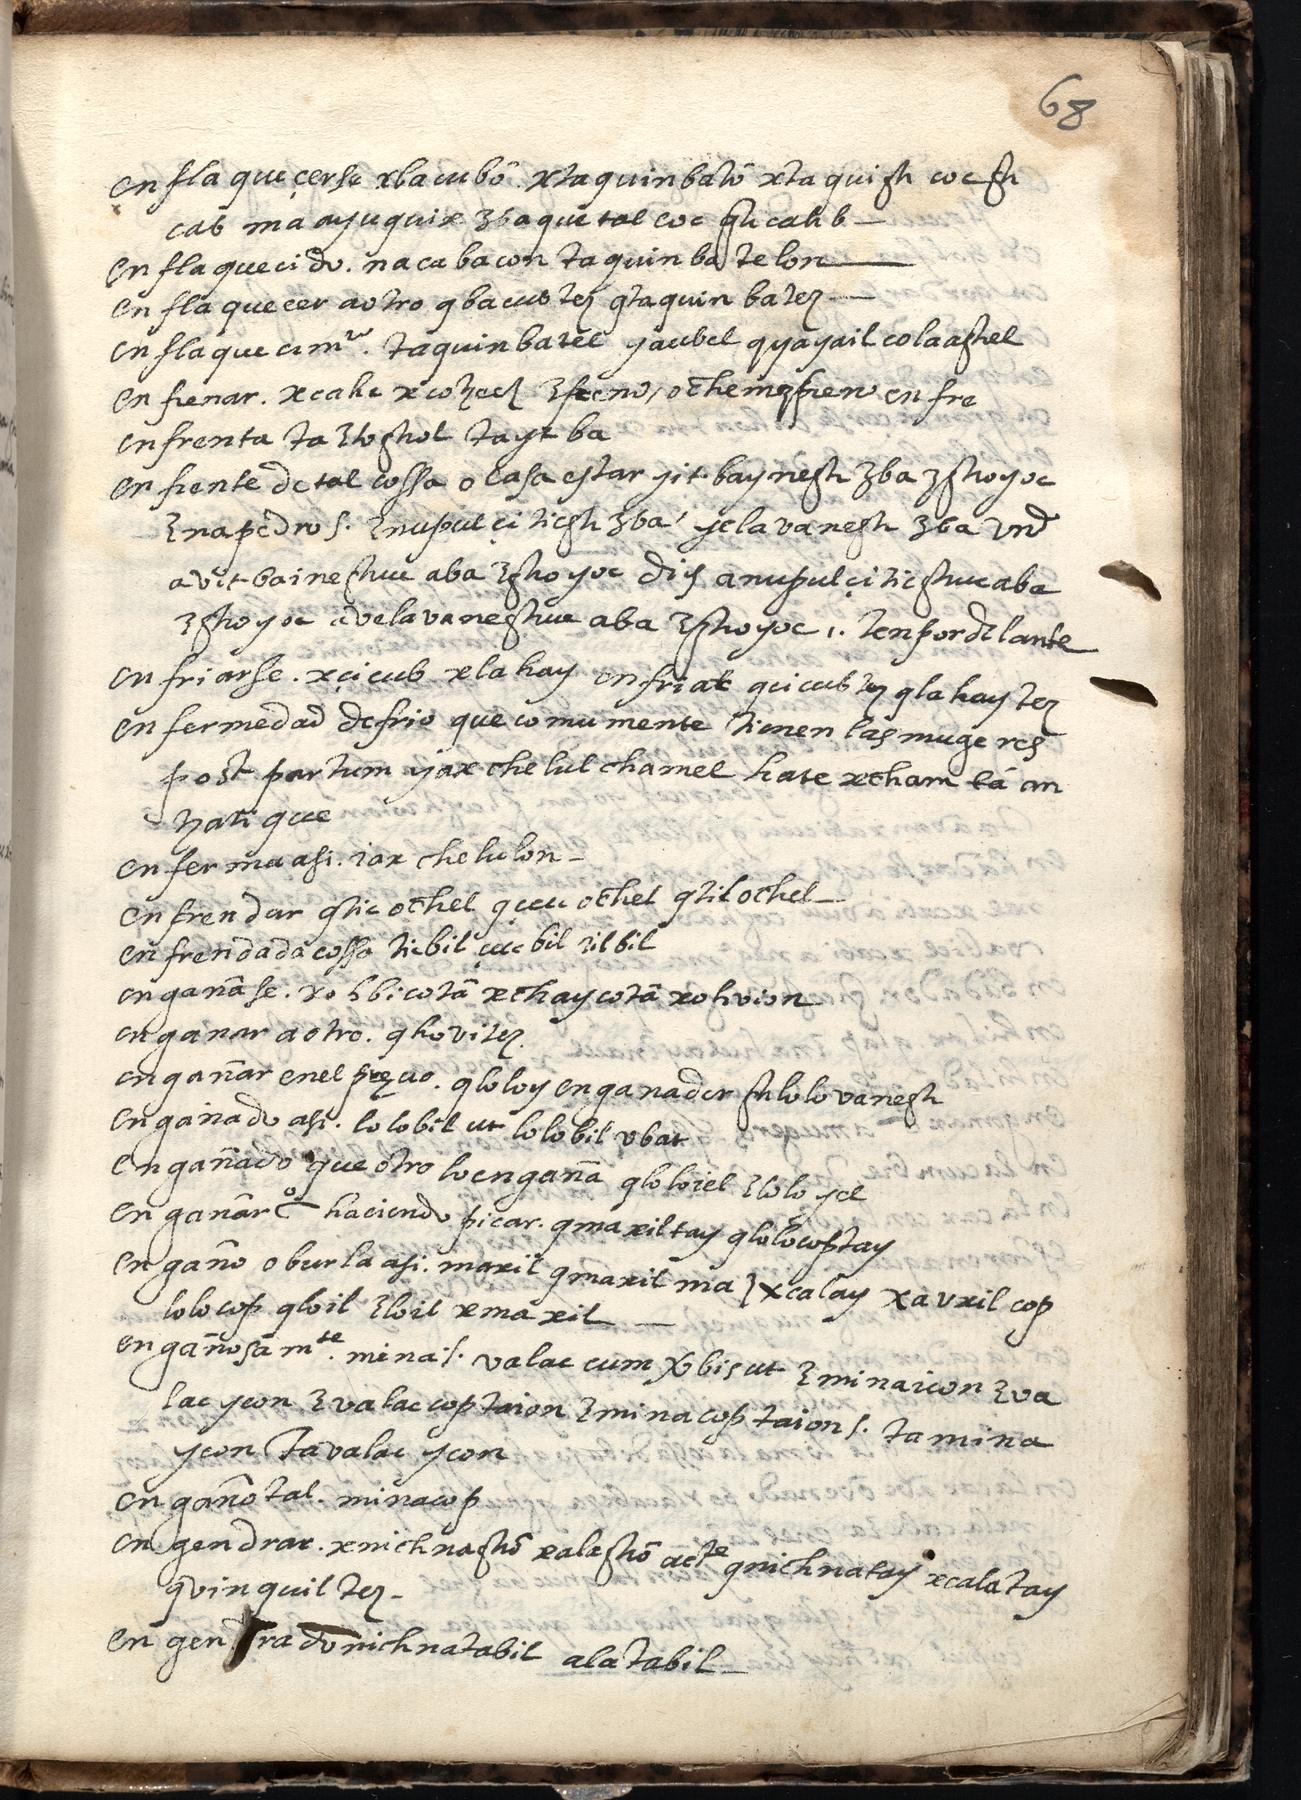 68
en flaqueçerse xbacubõ. xtaquinbatõ xtaquisti coc sti
cab ma ayuquix ꜫbaquetal coc sticalib
en flaquecido. nacabacon taquinbatelon
en flaquecer a otro qbacubtez qtaquin batez
en flaquecimto. taquinbatel yaubel qyayail colaastel
en frenar. xcahc freno en fre
en frenta ta ꜫlostiol tayt ba
en frente de tal cossa o casa estar yit. baynesti ꜫba ꜫstioyoc
ꜫna pedro s. ꜫnupulçiticsti ꜫba yelavanesti ꜫba vnd
avit bainestiuc aba ꜫstioyoc dis anupulçiticstiucaba
ꜫstioyoc avelavanestiuc aba ꜫstioyoc ı. tenpordelante
en friarse. xçicub xlahay enfriar qcicubtez qlahaytez
en fermedad defrio que comumente tienen las mugeres
post partum yax chelul chamel hate xcham lá an
tzatique
en fermu asi. iax chelulon
en frendar qtic ochel qçuc ochel qtilochel
en frendada cossa ticbil çucbil tilbil
en gañase. xo bicotã xchaycotã xohvion
en ganar aotro. qhovitez.
en gañar enel preçuo. qloloy enganader stilolovanesti
en gañado asi. lolobil ut lolobil vbat
en gañado que otro loengaña qloloiel ꜫloloyel
en gañar haciendo picar. qmaxiltay qlolocoptay
en gaño o burla asi. maxil qmaxil ma xcalay xavxil cop
lolocop qloil ꜫloil xmaxil
en gañosamte. mina s. valac cum verbis ut ꜫminaicon ꜫva
lac ycon ꜫvalaccoptaion ꜫminacoptaion s. tamina
ycon tavalac ycon
en gaño tal. minacop
en gendrar. xnichnastiõ xalastiõ acte qnichnatay xcalatay
qvinquiltez
en gendrado nichnatabil alatabil